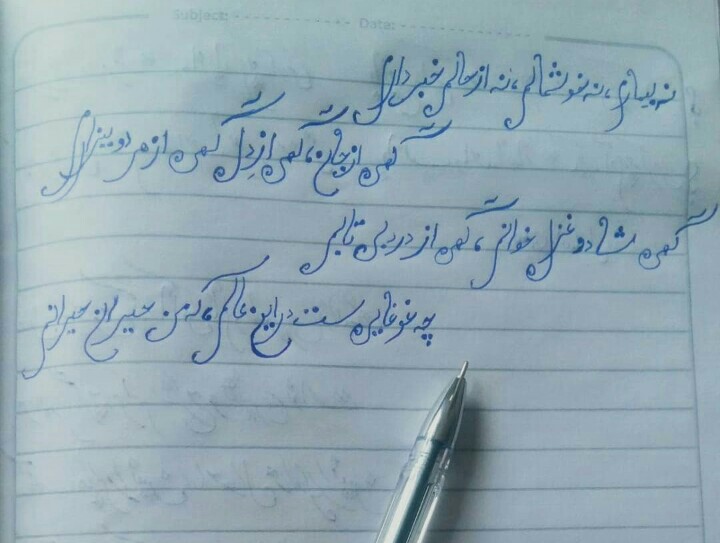 Subject: Date:
نه بیمارم، نه خوشحالم، نه از حالم خبر دارم
گهی از جان، گهی از دِل گهی از هر دو بیزارم
گهی شاد و غزل خوانم، گهی از درد بی تابم
چه غوغایی ست در این عالم، که من حیران حیرانم